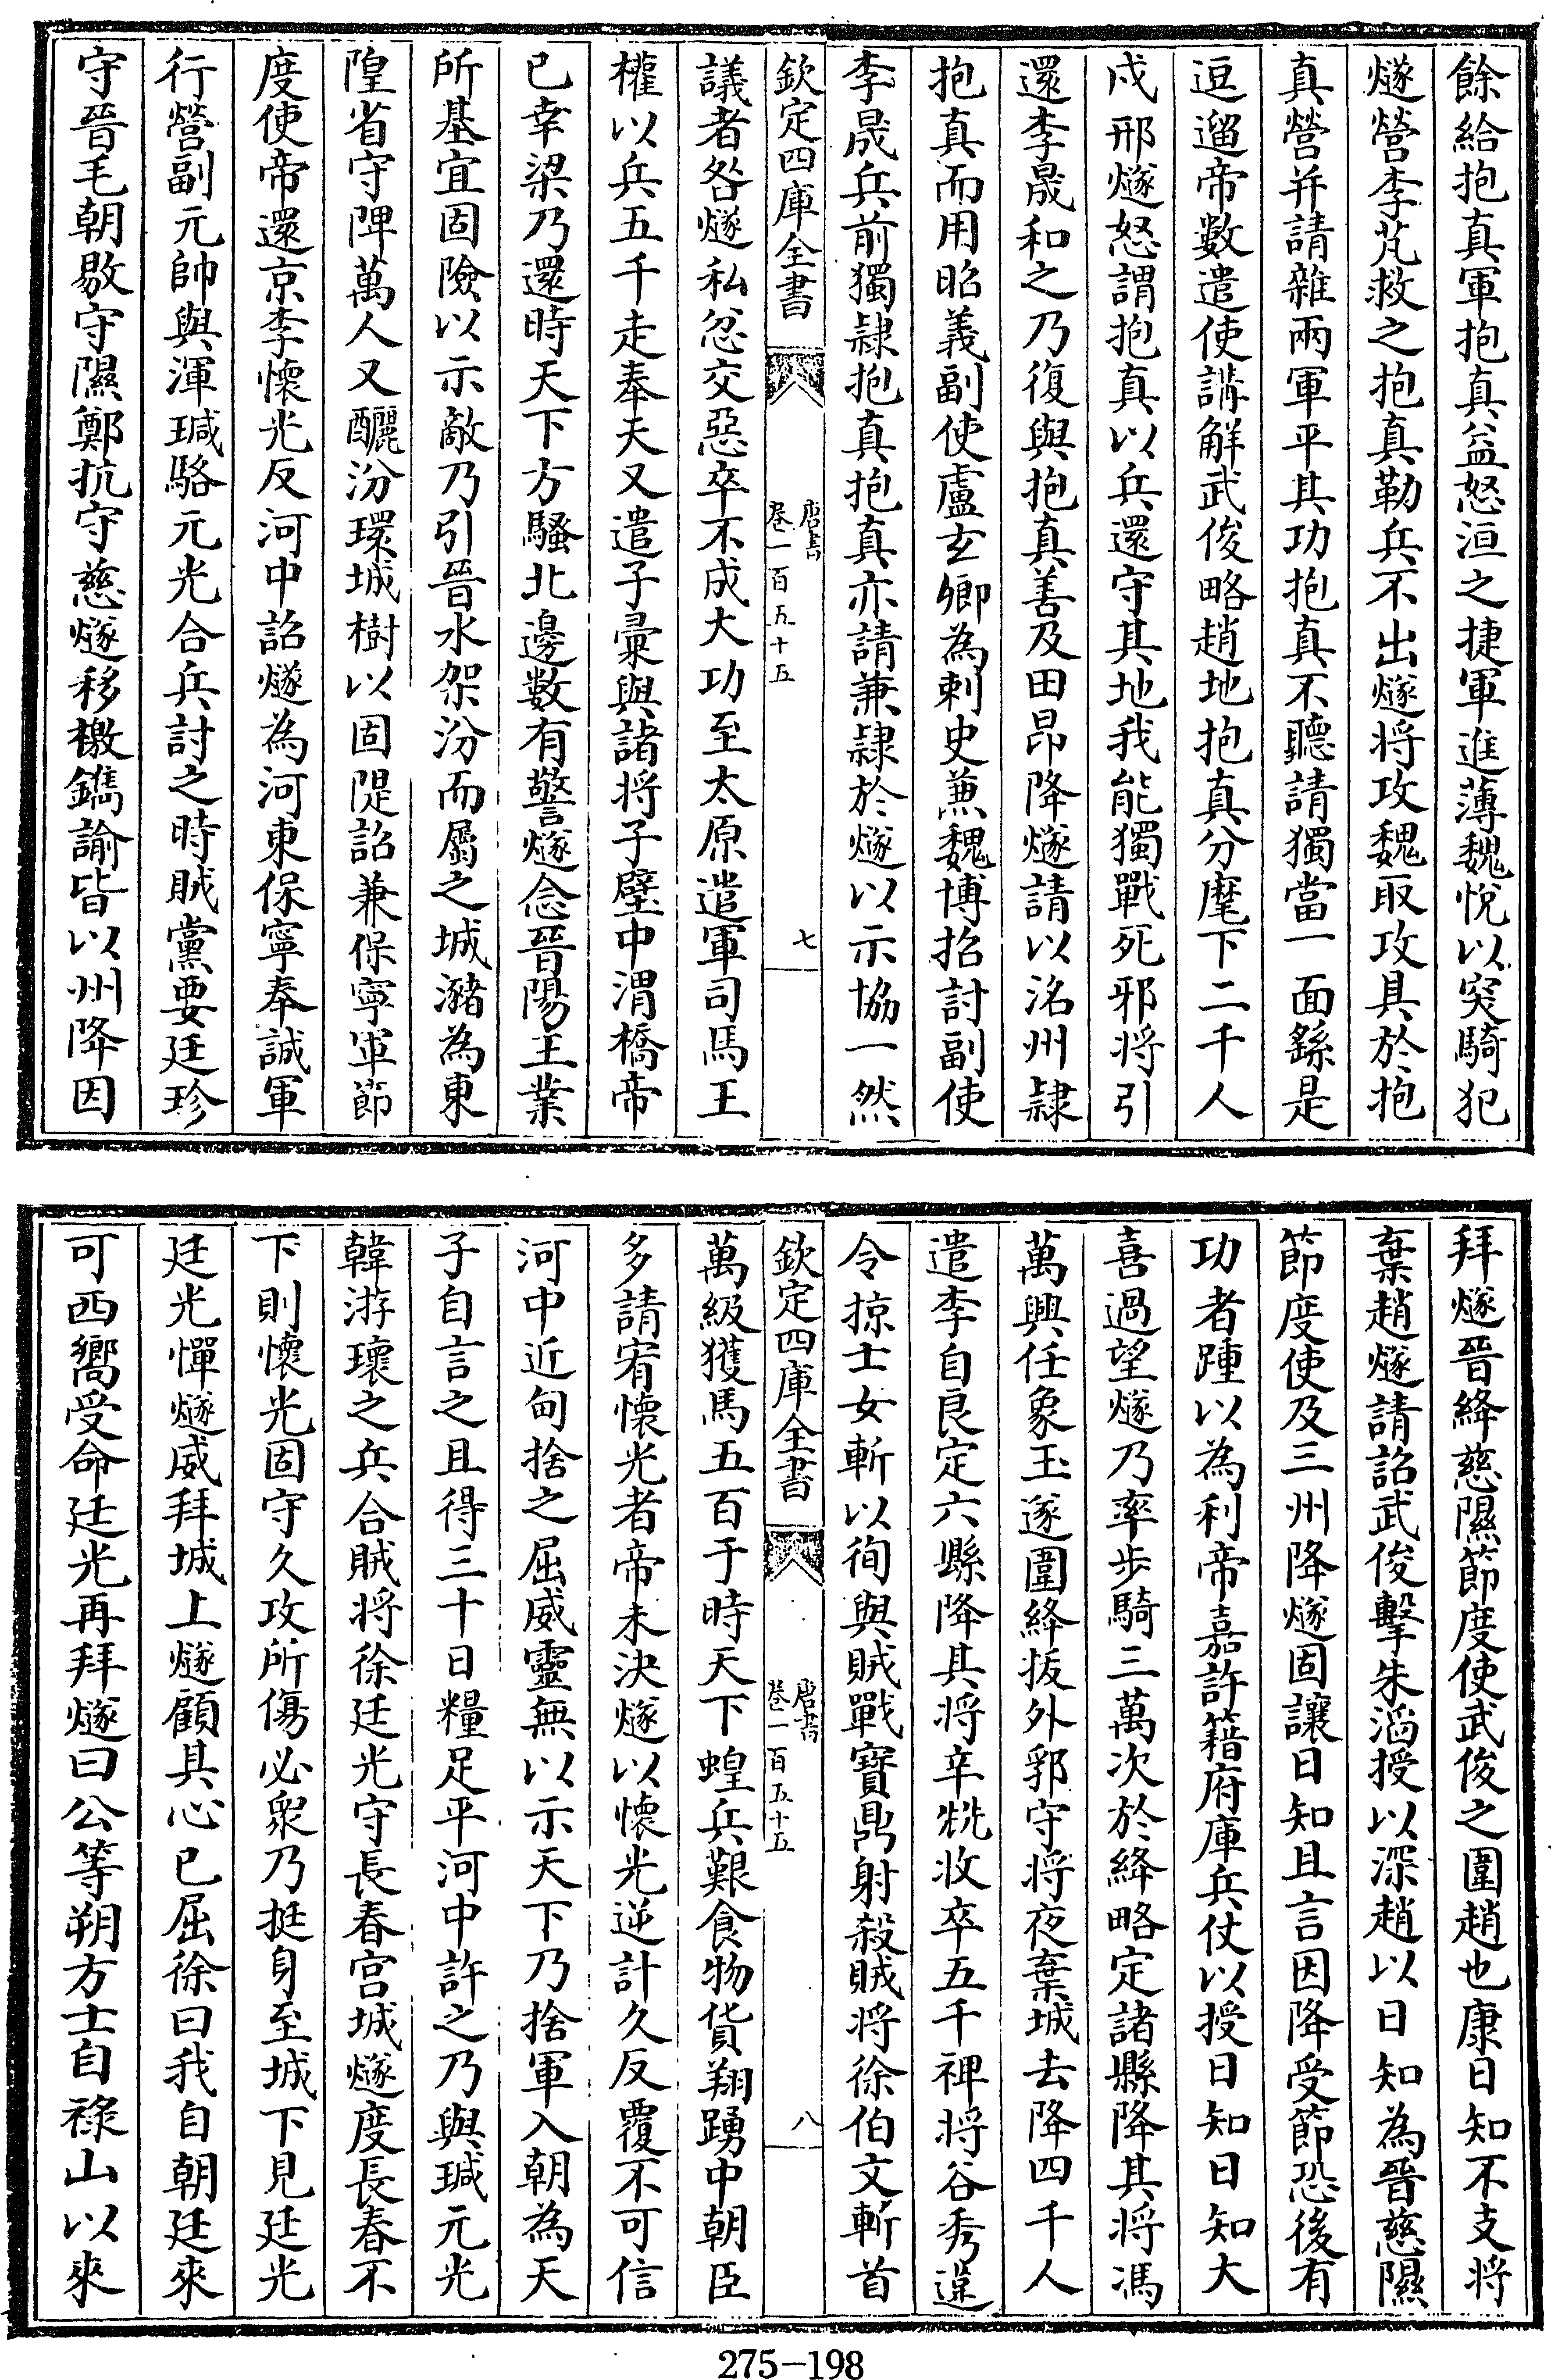 餘給抱真軍抱真益怒洹之捷軍進薄魏悅以突騎犯
燧營李芃救之抱真勒兵不出燧將攻魏取攻具於抱
真營并請雜兩軍平其功抱真不聽請獨當一面繇是
逗遛帝數遣使講解武俊略趙地抱真分麾下二千人
戍邢燧怒謂抱真以兵還守其地我能獨戰死邪將引
還李晟和之乃復與抱真善及田昂降燧請以洺州隸
抱真而用昭義副使盧玄卿為刺史兼魏博招討副使
李晟兵前獨隸抱真抱真亦請兼隸於燧以示協一然
欽定四庫全書
唐書
卷一百五十五
七
議者咎燧私忿交惡卒不成大功至太原遣軍司馬王
權以兵五千走奉天又遣子彙與諸將子壁中渭橋帝
已幸梁乃還時天下方騷北邊數有警燧念晉陽王業
所基宜固險以示敵乃引晉水架汾而屬之城瀦為東
隍省守陴萬人又釃汾環城樹以固隄詔兼保寧軍節
度使帝還京李懷光反河中詔燧為河東保寧奉誠軍
行營副元帥與渾瑊駱元光合兵討之時賊黨要廷珍
守晉毛朝敭守隰鄭抗守慈燧移檄鐫諭皆以州降因
拜燧晉絳慈隰節度使武俊之圍趙也康日知不支將
棄趙燧請詔武俊擊朱滔授以深趙以日知為晉慈隰
節度使及三州降燧固讓日知且言因降受節恐後有
功者踵以為利帝嘉許籍府庫兵仗以授日知日知大
喜過望燧乃率步騎三萬次於絳略定諸縣降其將馮
萬興任象玉遂圍絳拔外郛守將夜棄城去降四千人
遣李自良定六縣降其將辛兟收卒五千裨將谷秀違
令掠士女斬以徇與賊戰寶鼎射殺賊將徐伯文斬首
欽定四庫全書
唐書
卷一百五十五
八
萬級獲馬五百于時天下蝗兵艱食物貨翔踴中朝臣
多請宥懷光者帝未決燧以懷光逆計久反覆不可信
河中近甸捨之屈威靈無以示天下乃捨軍入朝為天
子自言之且得三十日糧足平河中許之乃與瑊元光
韓游瓌之兵合賊將徐廷光守長春宮城燧度長春不
下則懷光固守久攻所傷必眾乃挺身至城下見廷光
廷光憚燧威拜城上燧顧其心已屈徐曰我自朝廷來
可西嚮受命廷光再拜燧曰公等朔方士自祿山以來
275-198